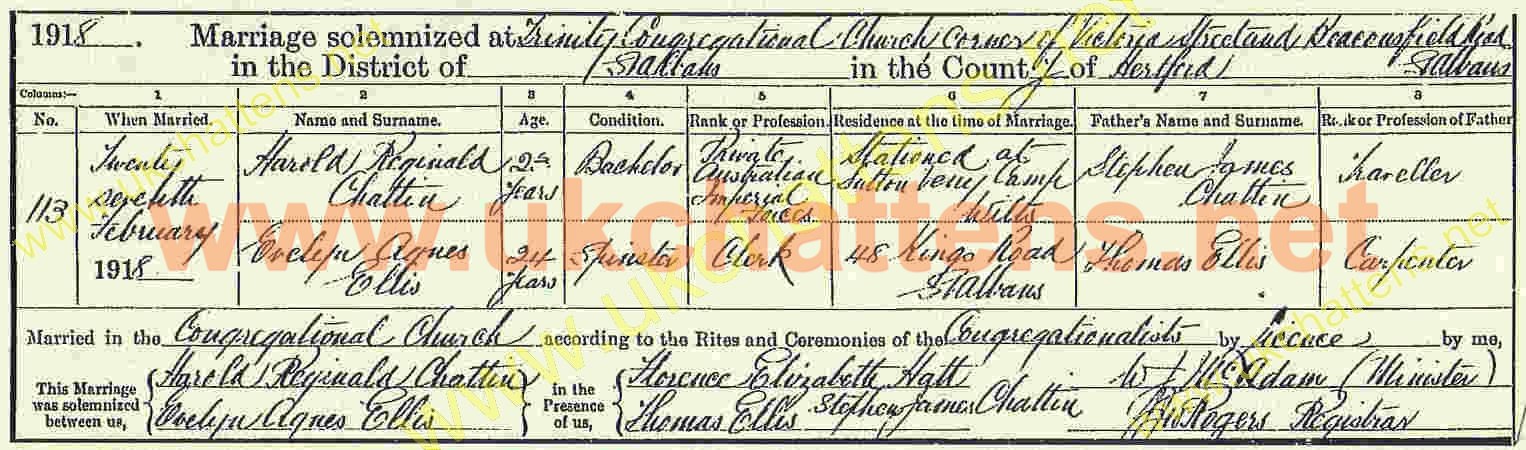 1918. Marriage solemnized at Trinity Congregational Church corner of Victoria Street and Beaconsfield Road St Albans
in the District of St Albans in the County of Hertford
Columns:— 1 2 3 4 5 6 7 8
No. When Married. Name and Surname. Age. Condition. Rank or Profession. Residence at the time of Marriage. Father's Name and Surname. Rank or Profession of Father
113 Twenty seventh February 1918
Harold Reginald Chattin
Years
Bachelor
Private Australian Imperial Forces
Stationed at Camp Wilts
Stephen James Chattin
Traveller
Evelyn Agnes Ellis
24 Years
Spinster
Clerk
48 Kings Road St Albans
Thomas Ellis
Carpenter
Married in the Congregational Church according to the Rites and Ceremonies of the Congregationalists by licence by me,
This Marriage was solemnized between us,
Harold Reginald Chattin
Evelyn Agnes Ellis
in the Presence of us,
Florence Elizabeth Hatt
Thomas Ellis Stephen James Chattin
McAdam (Minister)
Rogers Registrar
www.ukchattens.net
www.ukchattens.net
www.ukchattens.net
www.ukchattens.net